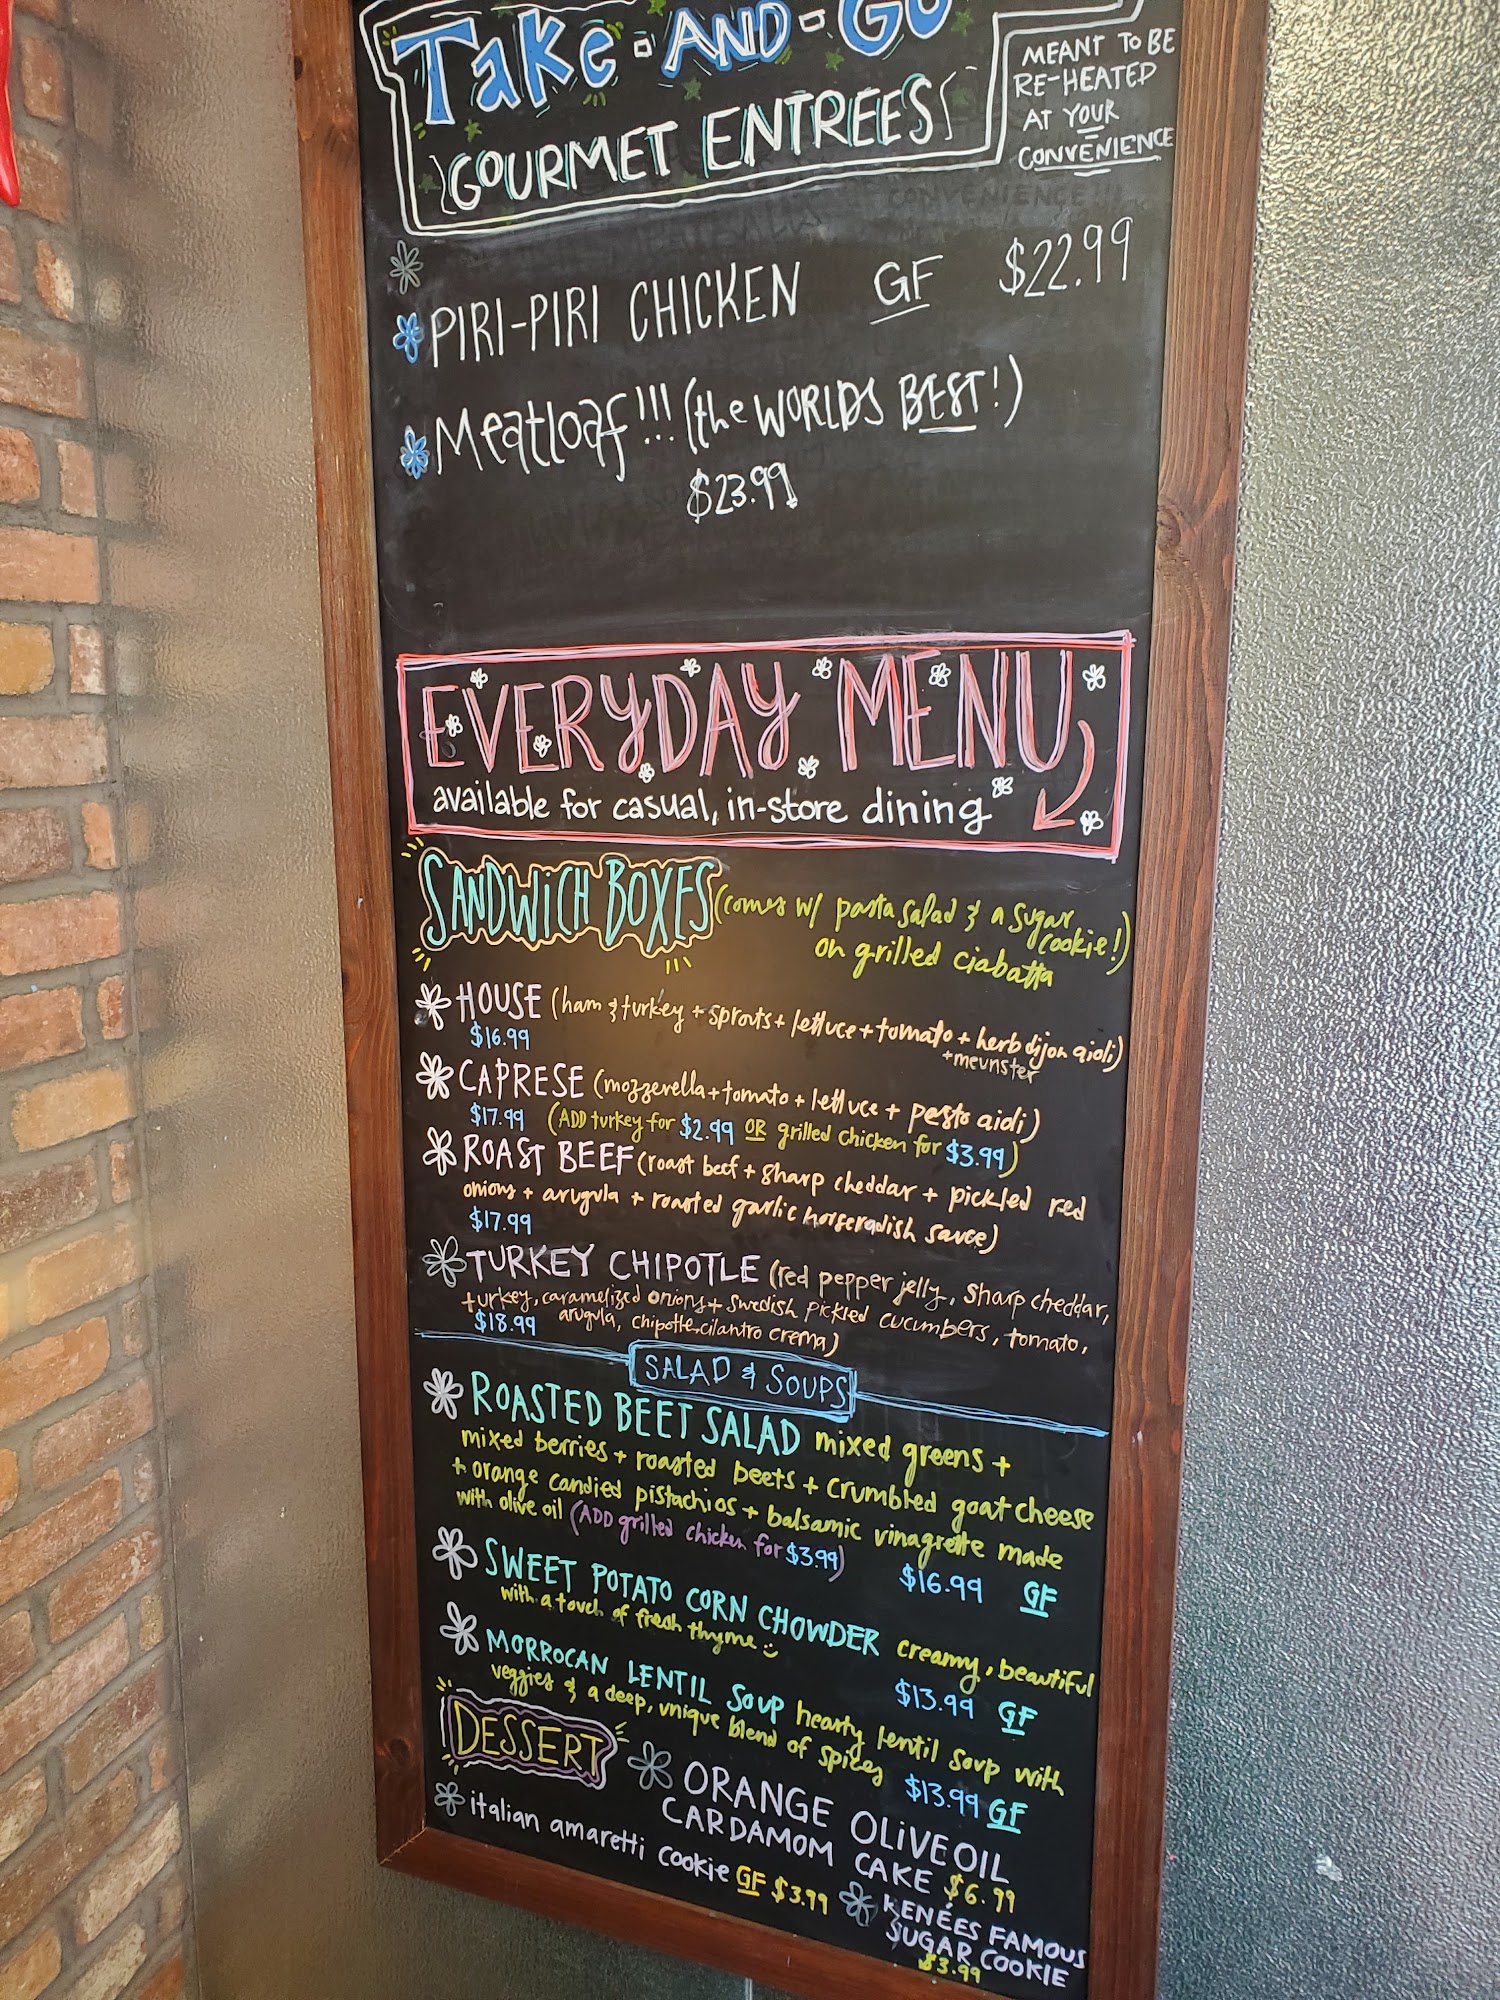 Take-AND-GO
GOURMET ENTREES
MEANT TO BE
RE-HEATED
AT YOUR
CONVENIENCE
PIRI-PIRI CHICKEN GF $22.99
Meatloaf!!! (the WORLDS BEST!)
$23.99
EVERYDAY MENU
available for casual, in-store dining
SANDWICH BOXES (comes w/ pasta salad & a sugar
cookie!)
on grilled ciabatta
HOUSE (ham & turkey + sprouts + lettuce + tomato + herb dijon aioli)
$16.99 + meunster
CAPRESE (mozzerella + tomato + lettuce + pesto aioli)
$17.99 (ADD turkey for $2.99 OR grilled chicken for $3.99)
ROAST BEEF (roast beef + sharp cheddar + pickled red
onions + arugula + roasted garlic horseradish sauce)
$17.99
TURKEY CHIPOTLE (red pepper jelly, sharp cheddar,
turkey, caramelized onions + swedish pickled cucumbers, tomato,
$18.99 arugula, chipotle, cilantro crema)
SALAD & SOUPS
ROASTED BEET SALAD mixed greens +
mixed berries + roasted beets + crumbled goat cheese
+ orange candied pistachios + balsamic vinagrette made
with olive oil (ADD grilled chicken for $3.99) $16.99 GF
SWEET POTATO CORN CHOWDER creamy, beautiful
with a touch of fresh thyme $13.99 GF
MORROCAN LENTIL SOUP hearty lentil soup with
veggies & a deep, unique blend of spices $13.99 GF
DESSERT
ORANGE OLIVE OIL
CARDAMOM CAKE $6.99
italian amaretti cookie GF $3.99
RENÉES FAMOUS
SUGAR COOKIE
$3.99